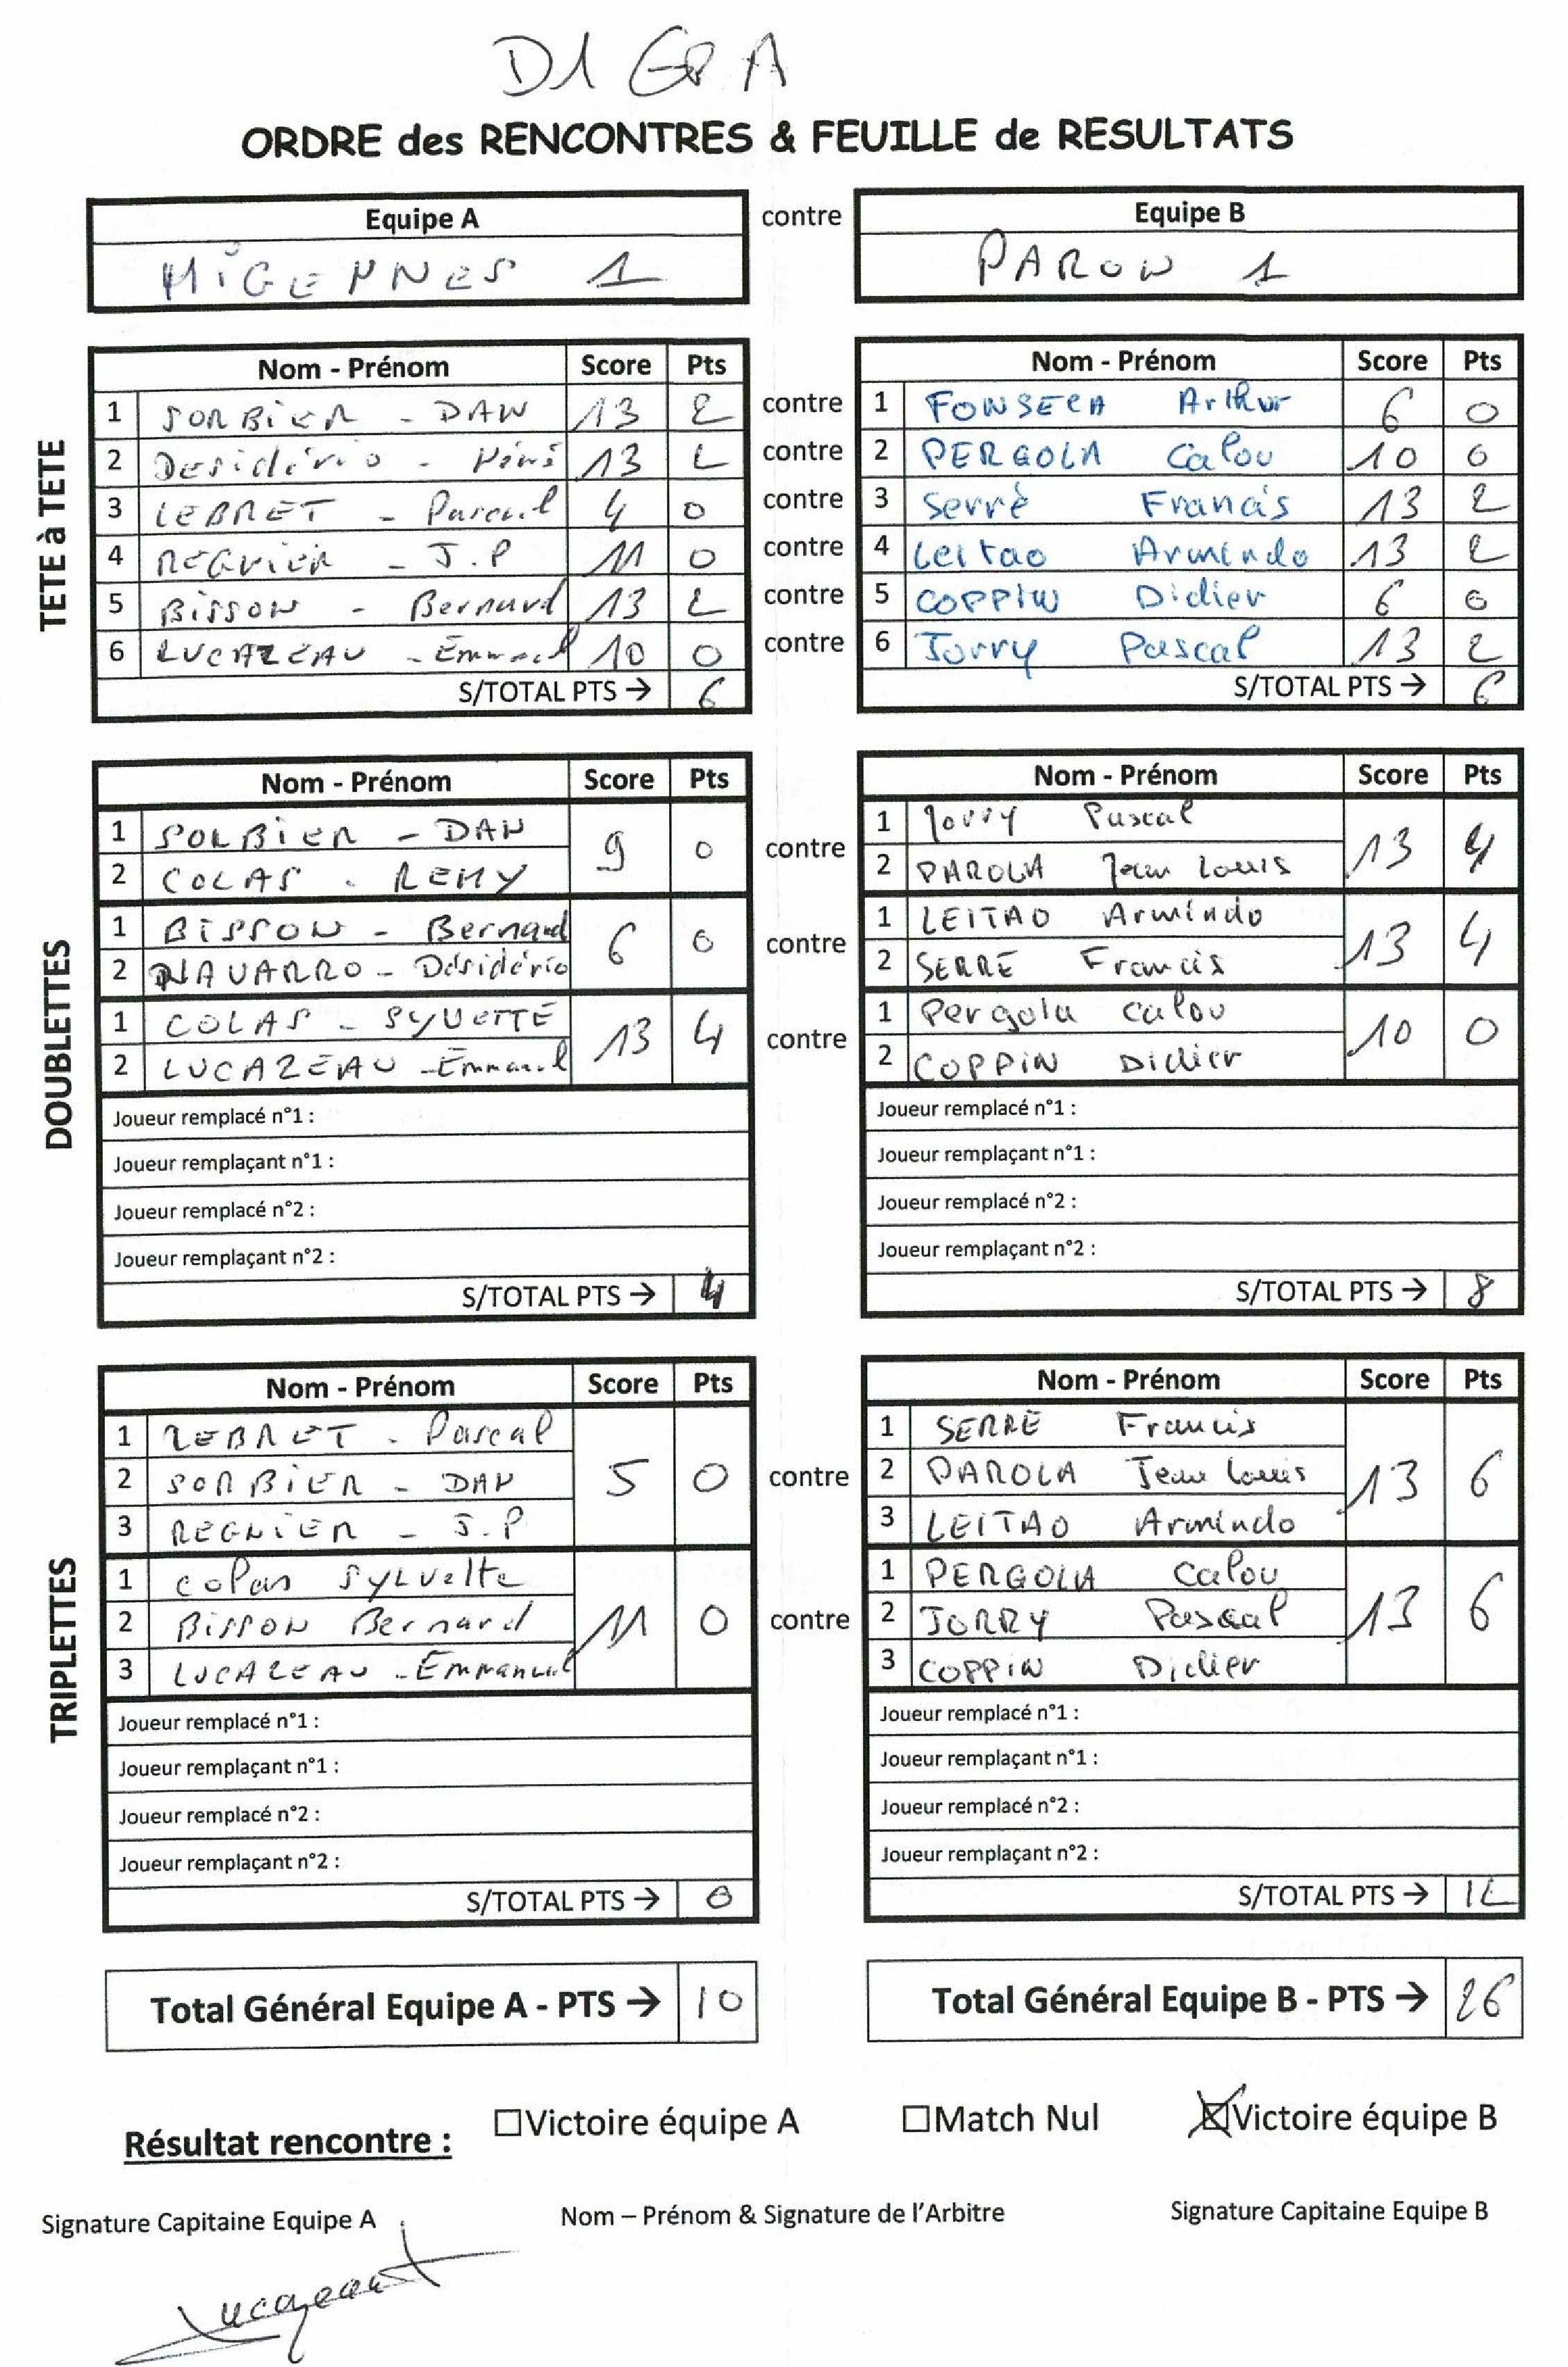 D1 GP A
ORDRE des RENCONTRES & FEUILLE de RESULTATS
Equipe A contre Equipe B
MIGENNES 1 PARON 1
TETE à TETE
Nom - Prénom Score Pts Nom - Prénom Score Pts
1 SORBIER - DAN 13 2 contre 1 FONSECA Arthur 6 0
2 Desidério - 13 2 contre 2 PERGOLA Calou 10 0
3 LEBRET - Pascal 4 0 contre 3 Serré Francis 13 2
4 REGNIER - J.P 11 0 contre 4 Leitao Armindo 13 2
5 BISSON - Bernard 13 2 contre 5 COPPIN Didier 6 0
6 LUCAZEAU - Emmanuel 10 0 contre 6 Jorry Pascal 13 2
S/TOTAL PTS → 6 S/TOTAL PTS → 6
DOUBLETTES
Nom - Prénom Score Pts Nom - Prénom Score Pts
1 SORBIER - DAN 9 0 contre 1 Jorry Pascal 13 4
2 COLAS - REMY 2 PAROLA Jean Louis
1 BISSON - Bernard 6 0 contre 1 LEITAO Armindo 13 4
2 NAVARRO - Désidério 2 SERRE Francis
1 COLAS - SYLVETTE 13 4 contre 1 Pergola Calou 10 0
2 LUCAZEAU - Emmanuel 2 COPPIN Didier
Joueur remplacé n°1 : Joueur remplacé n°1 :
Joueur remplaçant n°1 : Joueur remplaçant n°1 :
Joueur remplacé n°2 : Joueur remplacé n°2 :
Joueur remplaçant n°2 : Joueur remplaçant n°2 :
S/TOTAL PTS → 4 S/TOTAL PTS → 8
TRIPLETTES
Nom - Prénom Score Pts Nom - Prénom Score Pts
1 LEBRET - Pascal 1 SERRE Francis
2 SORBIER - DAN 5 0 contre 2 PAROLA Jean Louis 13 6
3 REGNIER - J.P 3 LEITAO Armindo
1 Colas SYLVette 1 PERGOLA Calou
2 BISSON Bernard 11 0 contre 2 JORRY Pascal 13 6
3 LUCAZEAU - Emmanuel 3 COPPIN Didier
Joueur remplacé n°1 : Joueur remplacé n°1 :
Joueur remplaçant n°1 : Joueur remplaçant n°1 :
Joueur remplacé n°2 : Joueur remplacé n°2 :
Joueur remplaçant n°2 : Joueur remplaçant n°2 :
S/TOTAL PTS → 0 S/TOTAL PTS → 12
Total Général Equipe A - PTS → 10 Total Général Equipe B - PTS → 26
Résultat rencontre : Victoire équipe A Match Nul Victoire équipe B
Signature Capitaine Equipe A Nom – Prénom & Signature de l'Arbitre Signature Capitaine Equipe B
Lucazeau